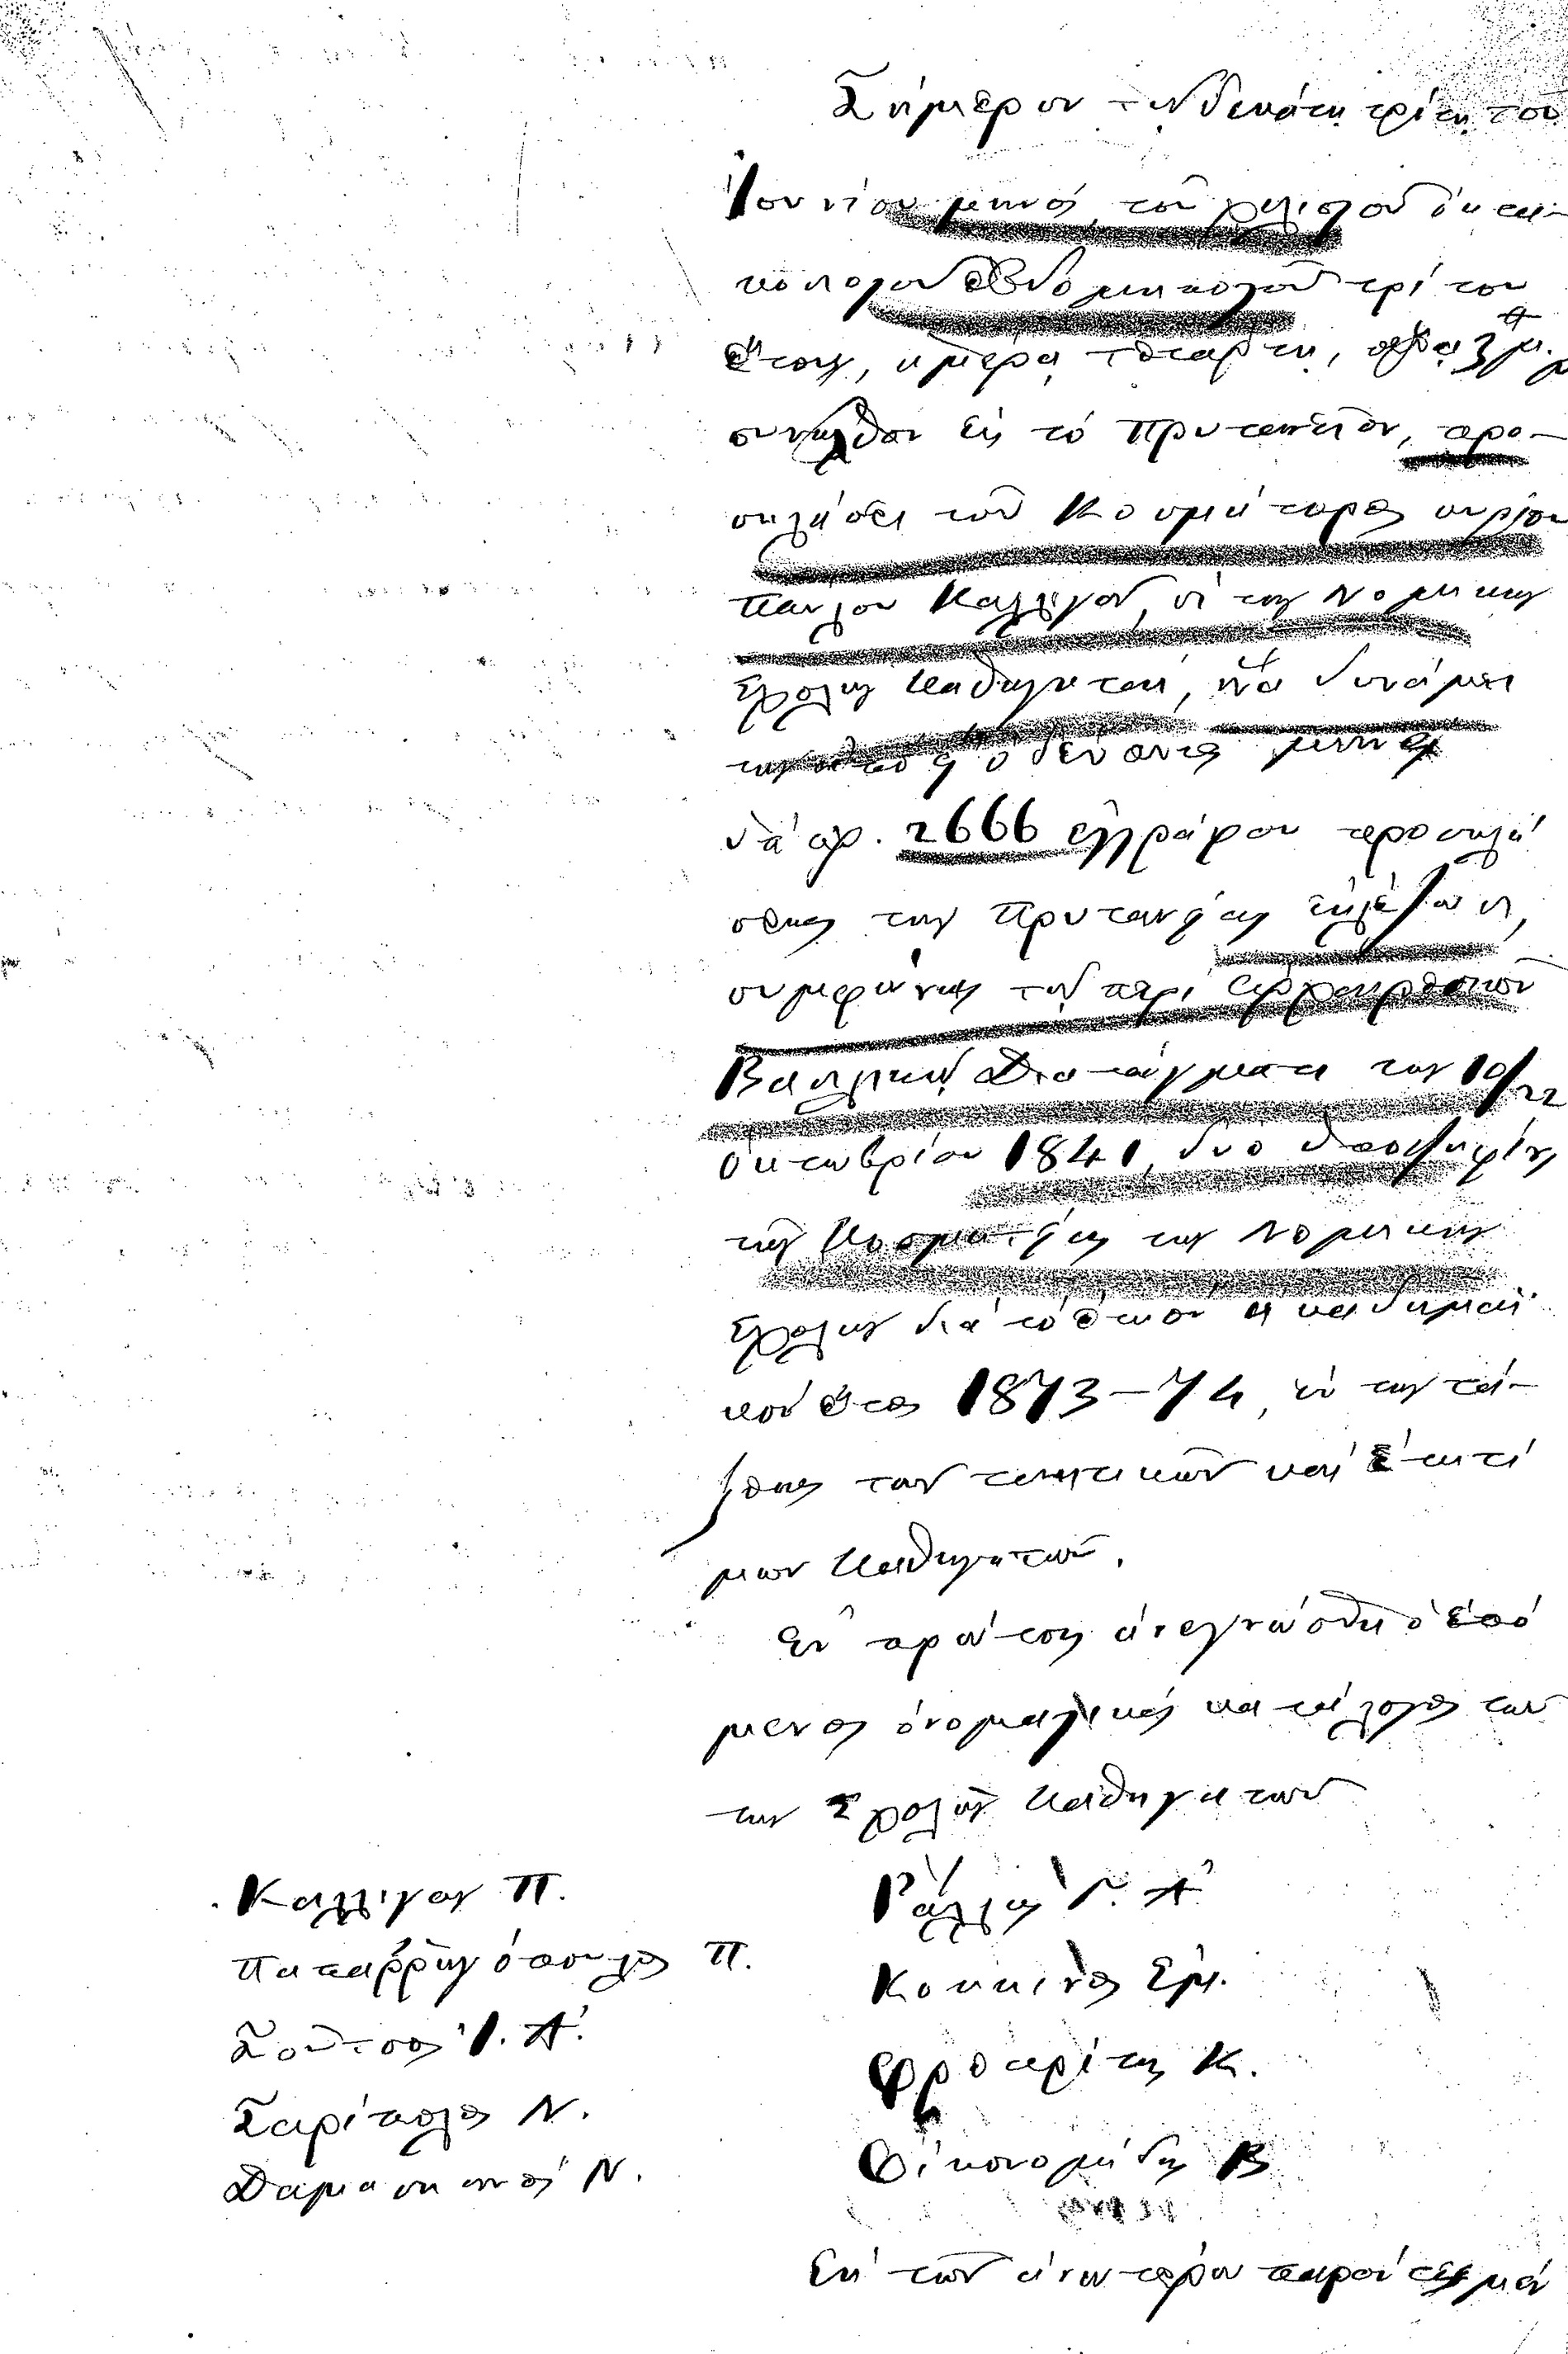 Σήμερον τῇ δεκάτῃ τρίτῃ τοῦ
Ἰουνίου μηνός, τοῦ χιλιοστοῦ ὀκτα-
κοσιοστοῦ ἑβδομηκοστοῦ τρίτου
ἔτους, ἡμέρᾳ τετάρτῃ, ὥρᾳ 3ῃ μ. μ.
συνῆλθον εἰς τὸ Πρυτανεῖον, προ-
σκλήσει τοῦ Κοσμήτορος κυρίου
Παύλου Καλλιγᾶ, οἱ τῆς Νομικῆς
Σχολῆς Καθηγηταί, ἵνα δυνάμει
τῆς ὁδεύοντος μηνὸς
ὑπ' ἀρ. 2666 ἐγγράφου προσκλή
σεως τῆς Πρυτανείας ἐκλέξωσι,
συμφώνως τῷ περὶ ἀρχαιρεσιῶν
Βασιλικῷ Διατάγματι τῆς 10/22
Ὀκτωβρίου 1841, δύο ὑποψηφίους
τῆς Κοσμητείας τῆς Νομικῆς
Σχολῆς διὰ τὸ ἀκαδημαϊ
κὸν ἔτος 1873–74, ἐκ τῆς τά-
ξεως τῶν τακτικῶν καὶ ἐπιτί
μων Καθηγητῶν.
Ἐν πρώτοις ἀνεγνώσθη ὁ ἑπό
μενος ὀνομαστικὸς κατάλογος τῶν
τῆς Σχολῆς Καθηγητῶν
Καλλιγᾶς Π. Ράλλης Γ. Α.
Παπαρρηγόπουλος Π. Κόκκινος Ἐμ.
Σοῦτσος Ἰ. Α. Φρεαρίτης Κ.
Σαρίπολος Ν. Οἰκονομίδης Β
Δαμασκηνός Ν.
Ἐκ τῶν ἀνωτέρω παρόντες μὲν